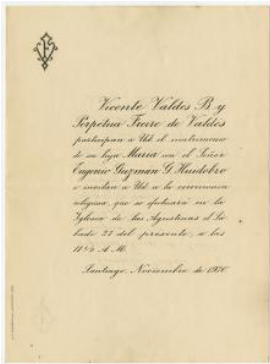 Vicente Valdes B. y
Perpetua Freire de Valdes
participan a Ud. el matrimonio
de su hija María con el Señor
Eugenio Guzman G. Huidobro
e invitan a Ud. a la ceremonia
religiosa, que se efectuará en la
Iglesia de las Agustinas el Sá-
bado 22 del presente, a las
11½ A.M.
Santiago, Noviembre de